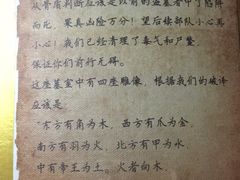 从骨质判断应该是以前的盗墓者中了陷阱
而死，果真凶险万分！望后续部队小心再
小心！我们已经清理了毒气和尸蹩，
保证你们前行无碍。
这座墓室中有四座雕像，根据我们的破译
应该是
“东方有角为木，西方有爪为金，
南方有羽为火，北方有甲为水，
中有帝王为土。火者向木，